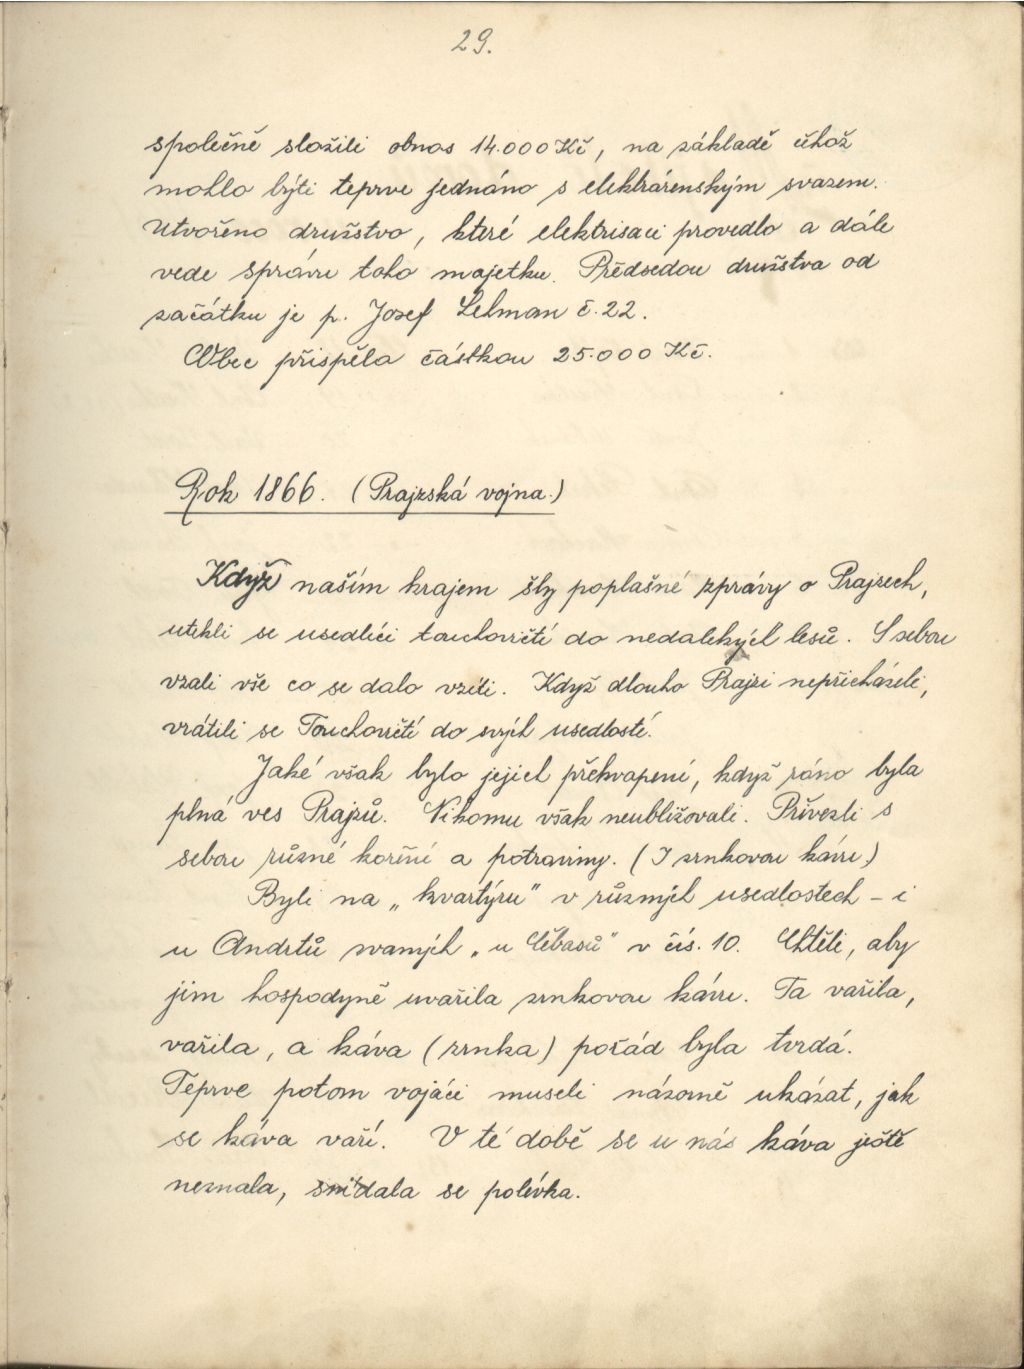 29.
společně složili obnos 14.000 Kč, na základě čehož
mohlo býti teprve jednáno s elektrárenským svazem.
Utvořeno družstvo, které elektrisaci provedlo a dále
vede správu toho majetku. Předsedou družstva od
začátku je p. Josef Lehman č. 22.
Obec přispěla částkou 25.000 Kč.
Rok 1866. (Prajzská vojna.)
Když naším krajem šly poplašné zprávy o Prajzech,
utekli se usedlíci touchovičtí do nedalekých lesů. S sebou
vzali vše co se dalo vzíti. Když dlouho Prajzi nepřicházeli,
vrátili se Touchovičtí do svých usedlostí.
Jaké však bylo jejich překvapení, když ráno byla
plná ves Prajzů. Nikomu však neubližovali. Přivezli s
sebou různé koření a potraviny. (I zrnkovou kávu.)
Byli na „kvartýru" v různých usedlostech - i
u Andrtů zvaných „u Cébasů" v čís. 10. Chtěli, aby
jim hospodyně uvařila zrnkovou kávu. Ta vařila,
vařila, a káva (zrnka) pořád byla tvrdá.
Teprve potom vojáci museli názorně ukázat, jak
se káva vaří. V té době se u nás káva ještě
neznala, snídala se polévka.